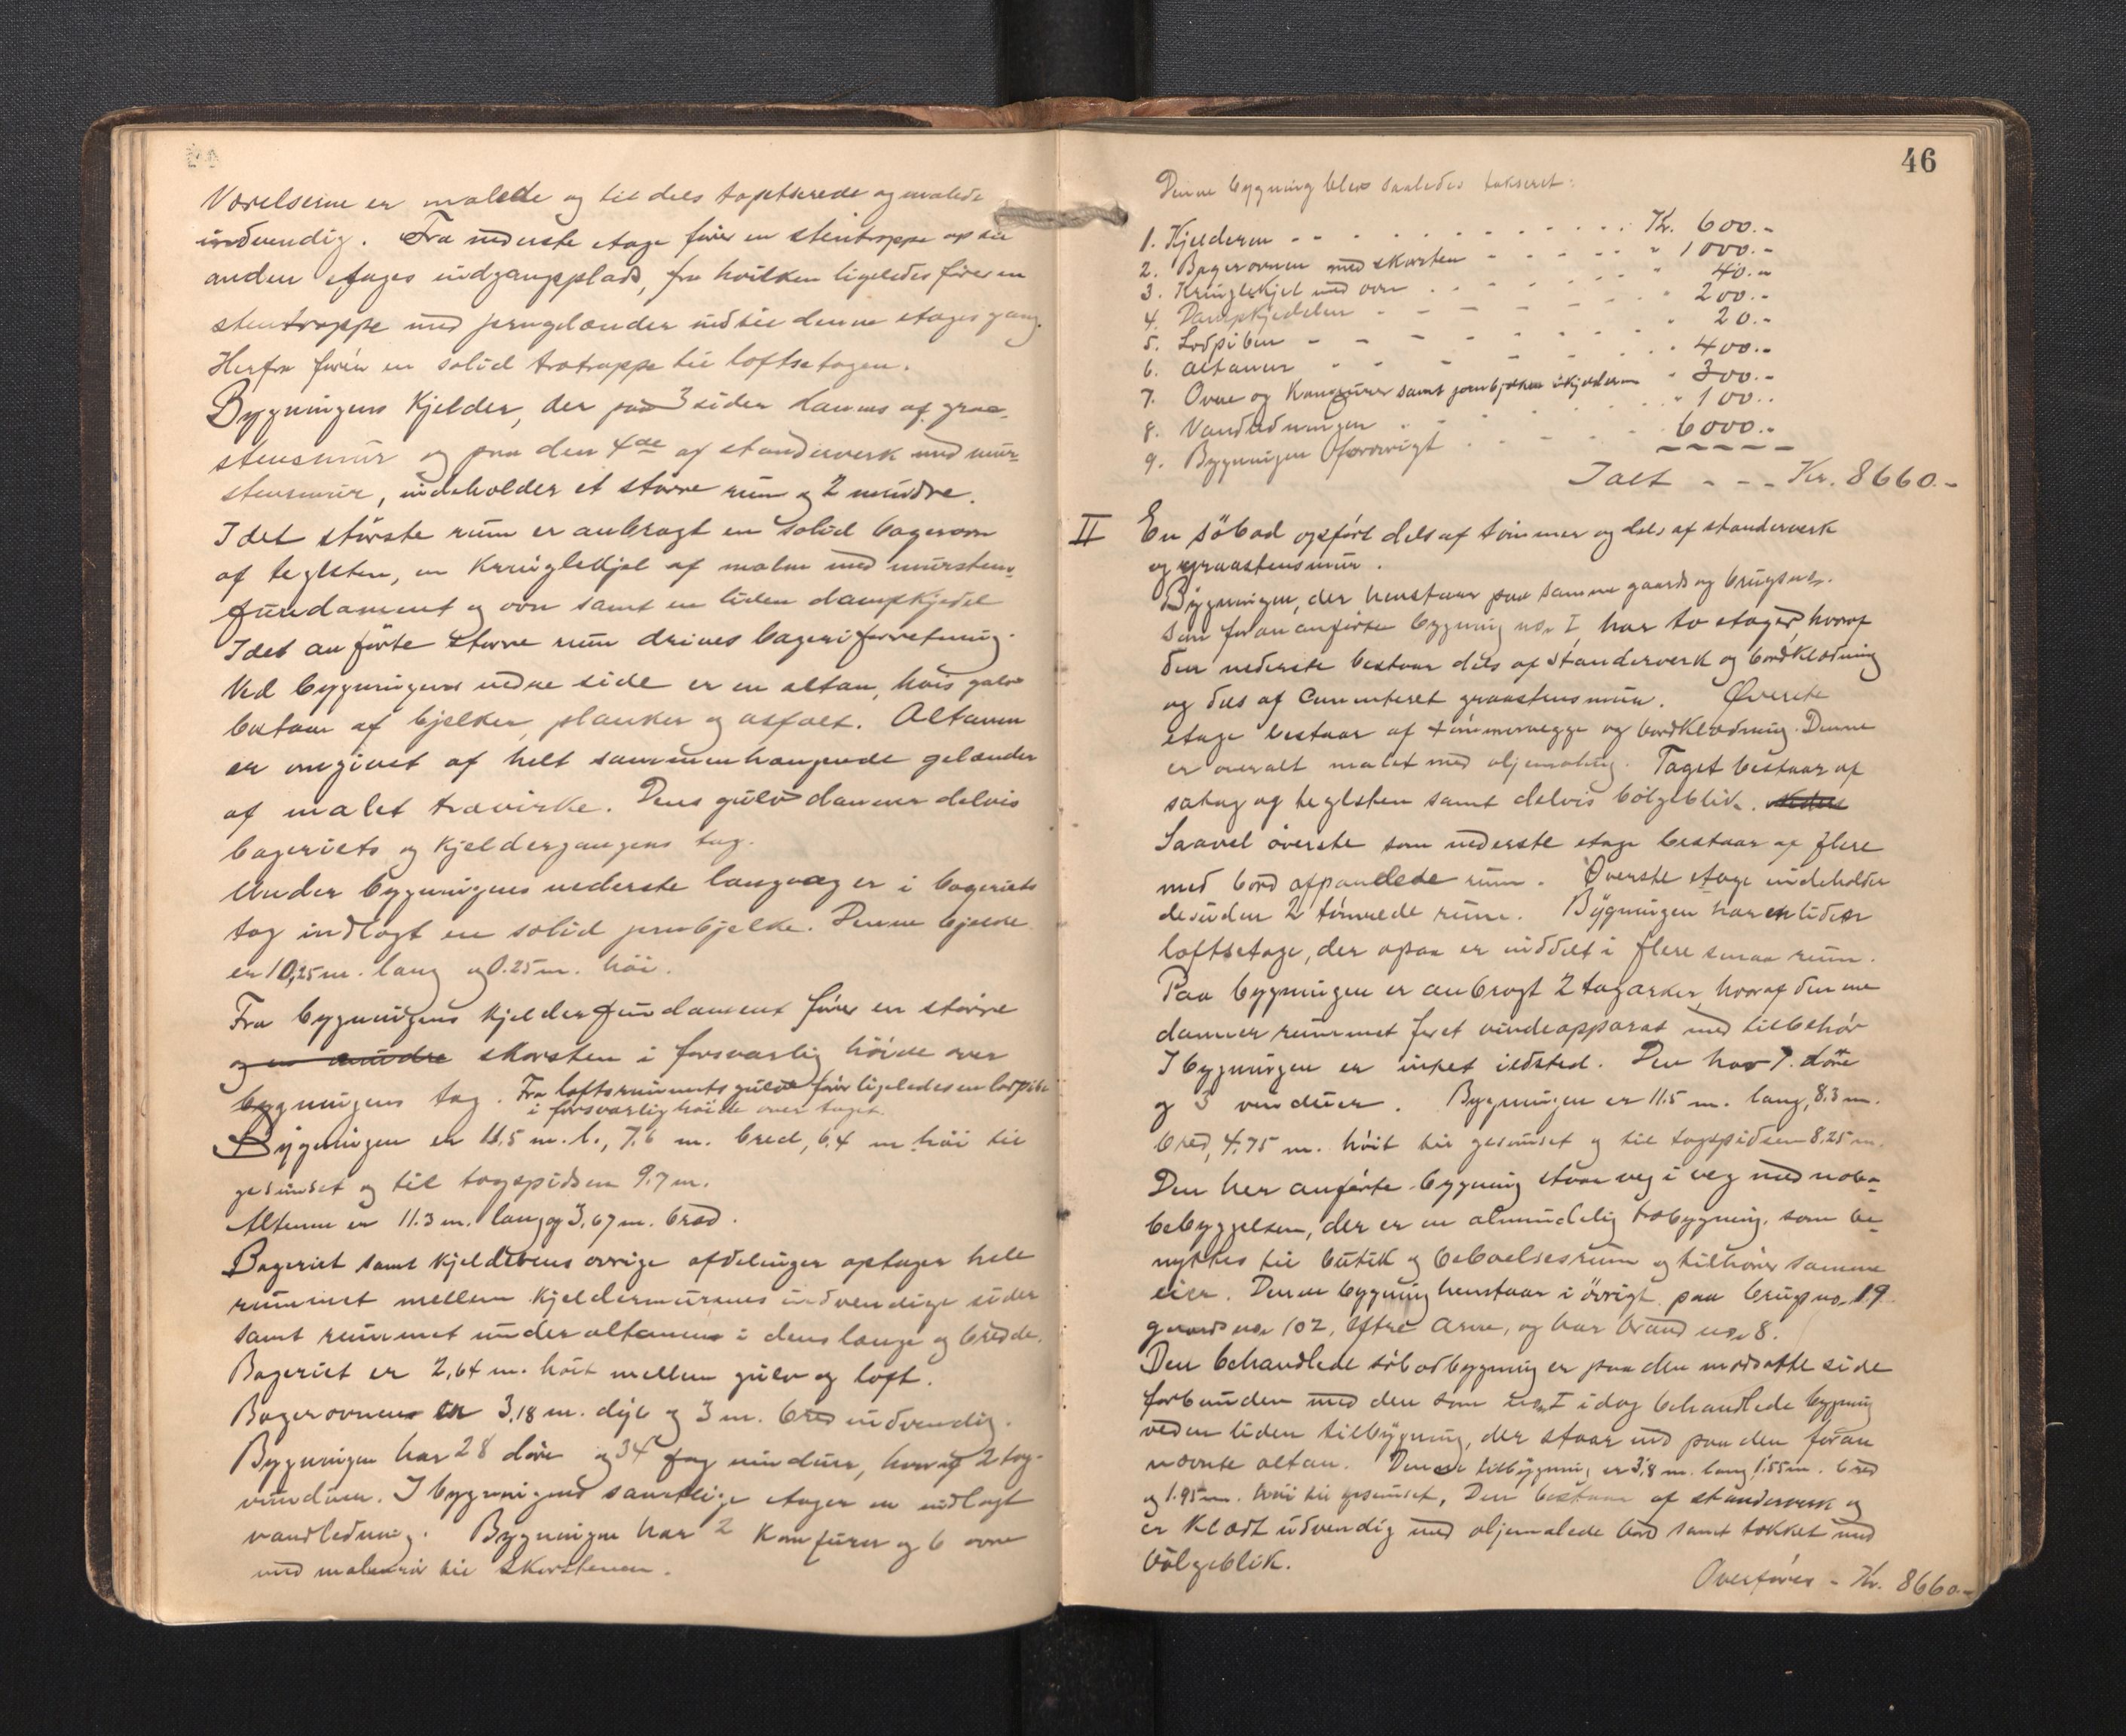 Værelserne er malede og til dels tapetserede og malede
indvendig. Fra nederste etage fører en stentrappe op til
anden etages indgangsplads, fra hvilken ligeledes fører en
stentrappe med jerngelænder ned til denne etages gang.
Herfra fører en solid trætrappe til loftsetagen.
Bygningens Kjelder, der paa 3 sider dannes af graa-
stensmur og paa den 4de af standerverk med mur-
stensmur, indeholder et større rum og 2 mindre.
I det største rum er anbragt en solid bagerovn
af teglsten, en Kringlekjel af malm med murstens-
fundament og ovn samt en liden dampkjedel
I det anførte større rum drives bageriforretning.
Ved bygningens nedre side er en altan, hvis gulv
bestaar af bjelker, planker og asfalt. Altanen
er omgivet af helt sammenhængende gelænder
af malet trævirke. Dens gulv danner delvis
bageriets og kjeldergangens tag.
Under bygningens nederste langvæg er i bageriets
tag indlagt en solid jernbjelke. Denne bjelke
er 10,25 m. lang og 0.25 m. høi.
Fra bygningens kjelderfundament fører en større
og en mindre skorsten i forsvarlig høide over
bygningens tag. Fra loftsrummets gulv fører ligeledes en lodpibe
i forsvarlig høide over taget.
Bygningen er 11.5 m. l., 7.6 m. bred, 6,4 m. høi til
gesimset og til tagspidsen 9.7 m.
Altanen er 11.3 m. lang og 3,67 m. bred.
Bageriet samt kjelderens øvrige afdelinger optager hele
rummet mellem kjeldermurenes indvendige sider
samt rummet under altanen i dens længe og bredde.
Bageriet er 2,64 m. høit mellem gulv og loft.
Bagerovnen er 3,18 m. dyb og 3 m. bred indvendig.
Bygningen har 28 døre og 34 fag vinduer, hvoraf 2 tag-
vinduer. I bygningens samtlige etager er indlagt
vandledning. Bygningen har 2 Komfurer og 6 ovne
med malmrør til skorstenen.
46
Denne bygning blev saaledes takseret:
1. Kjelderen - - . . . . . Kr. 600.-
2. Bagerovnen med skorsten - - - - " 1000.-
3. Kringlekjel med ovn . . . . " 40.-
4. Dampkjedelen - - - - " 200.-
5. Lodpiben - - - - - " 20.-
6. Altanen - - - - " 400.-
7. Ovne og Komfurer samt jernbjelken i kjelderen " 300.-
8. Vandledningen . . . . " 100..
9. Bygningen forøvrigt . . . . 6000.-
Ialt - - - Kr. 8660.-
II En søbod opført dels af tømmer og dels af standerverk
og graastensmur.
Bygningen, der henstaar paa samme gaards og brugsno.
som foran anførte bygning no. I, har to etager, hvoraf
den nederste bestaar dels af standerverk og bordklædning
og dels af cementeret graastensmur. Øverste
etage bestaar af tømmervegge og bordklædning. Denne
er overalt malet med oljemaling. Taget bestaar af
sutag og teglsten samt delvis bølgeblik.
Saavel øverste som nederste etage bestaar af flere
med bord afpanelede rum. Øverste etage indeholder
desuden 2 tømrede rum. Bygningen har en liden
loftsetage, der ogsaa er inddelt i flere smaa rum.
Paa bygningen er anbragt 2 tagarker, hvoraf den ene
danner rummet for et vindeapparat med tilbehør
I bygningen er intet ildsted. Den har 7 døre
og 3 vinduer. Bygningen er 11.5 m. lang, 8.3 m.
bred, 4.75 m. høit til gesimset og til tagspidsen 8.25 m.
Den her anførte bygning staar veg i veg med nabo-
bebyggelsen, der er en almindelig træbygning, som be-
nyttes til butik og beboelsesrum og tilhører samme
eier. Denne bygning henstaar i øvrigt paa brugsno. 19
gaards no. 102, Eftre Arne, og har brand no. 8.
Den behandlede søbodbygning er paa den modsatte side
forbunden med den som no. I idag behandlede bygning
ved en liden tilbygning, der staar ind paa den foran
nævnte altan. Denne tilbygning er 3,8 m. lang, 1.55 m. bred
og 1.95 m. høi til gesimset. Den bestaar af standerverk og
er klædt udvendig med oljemalede bord samt tækket med
bølgeblik.
Overføres - Kr. 8660.-